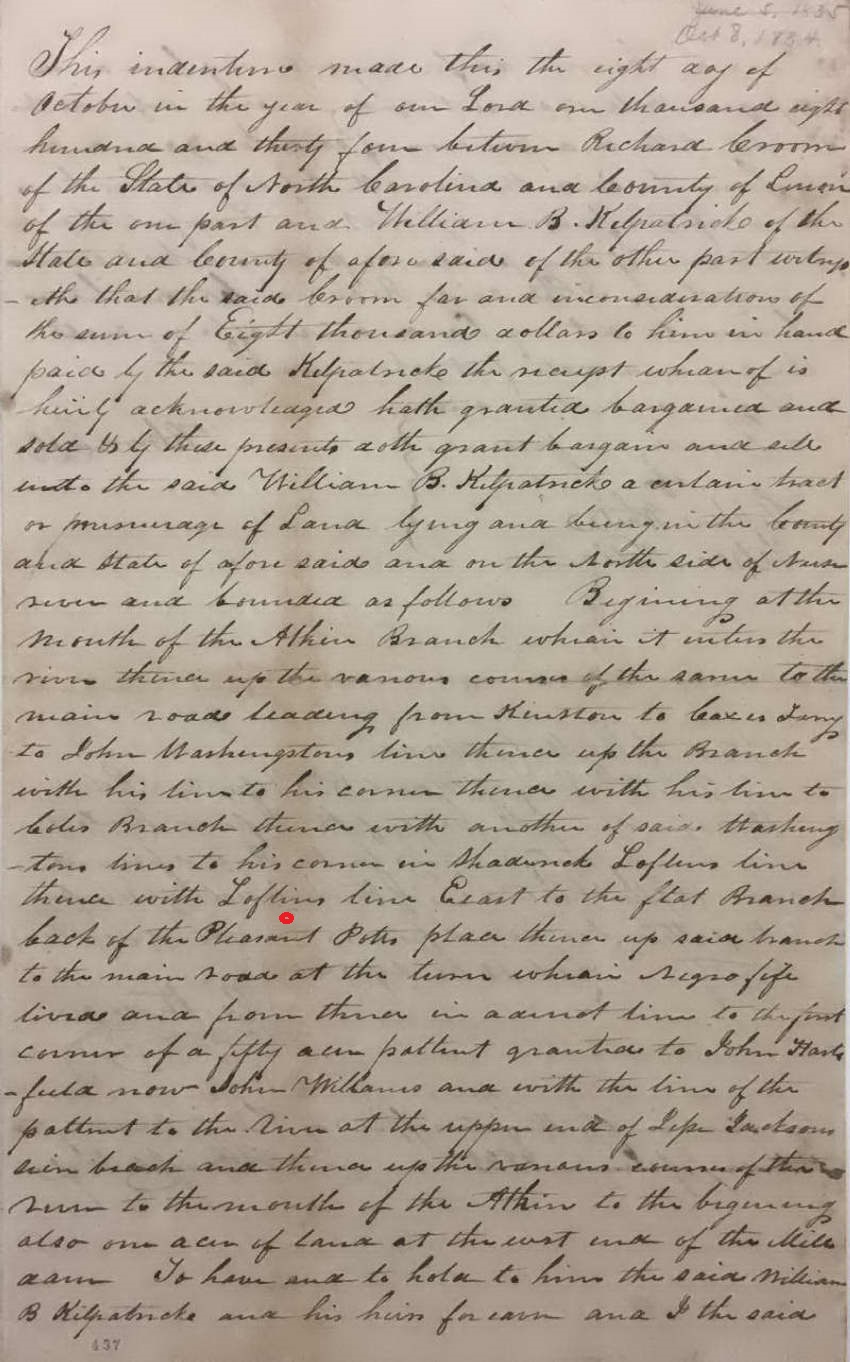 June 5, 1835
Oct 8, 1834
This indenture made this the eight day of
October in the year of our Lord one thousand eight
hundred and thirty four between Richard Croom
of the State of North Carolina and County of Lenoir
of the one part and William B. Kilpatrick of the
State and County of afore said of the other part witness
-eth that the said Croom for and inconsideration of
the sum of Eight thousand dollars to him in hand
paid by the said Kilpatrick the receipt whareof is
heirby acknowledged hath granted bargained and
sold & by these presents doth grant bargain and sell
unto the said William B. Kilpatrick a certain tract
or messuage of Land lying and being in the County
and State of afore said and on the North side of Neuse
river and bounded as follows Begining at the
mouth of the Atkin Branch whear it enters the
river thence up the various courses of the same to the
main road leading from Kinston to Coxes Ferry
to John Washingstons line thence up the Branch
with his line to his corner thence with his line to
Coles Branch thence with another of said Washing
-tons lines to his corner in Shaderick Loftins line
thence with Loftins line East to the flat Branch
back of the Pleasant Potts place thence up said branch
to the main road at the turn whear Negro fife
lived and from thence in a direct line to the first
corner of a fifty acre pattent granted to John Harts
-field now John Williams and with the line of the
pattent to the River at the upper end of Jesse Jacksons
sein beach and thence up the various courses of the
river to the mouth of the Atkin to the begining
also one acre of land at the west end of the Mill
dam To have and to hold to him the said William
B Kilpatrick and his heirs forever and I the said
437